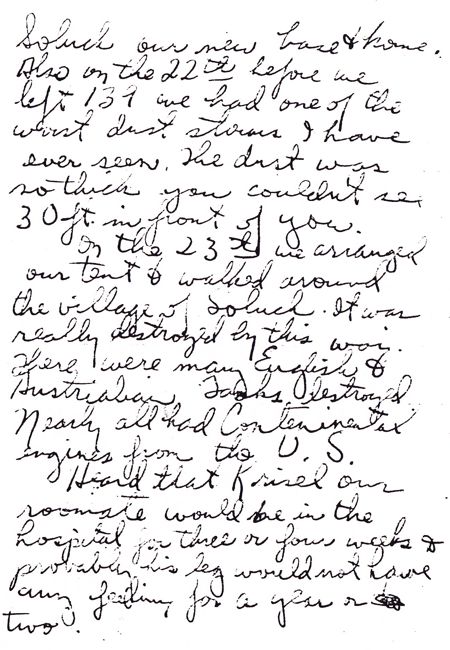 Soluch our new base & home.
Also on the 22nd before we
left 139 we had one of the
worst dust storms I have
ever seen. The dust was
so thick you couldn't see
30 ft. in front of you.
On the 23rd we arranged
our tent & walked around
the village of Soluch. It was
really destroyed by this war.
There were many English &
Australian Tanks destroyed
Nearly all had Contenimental
engines from the U. S.
Heard that Krisel our
roomate would be in the
hospital for three or four weeks &
probably his leg would not have
any feeling for a year or
two.